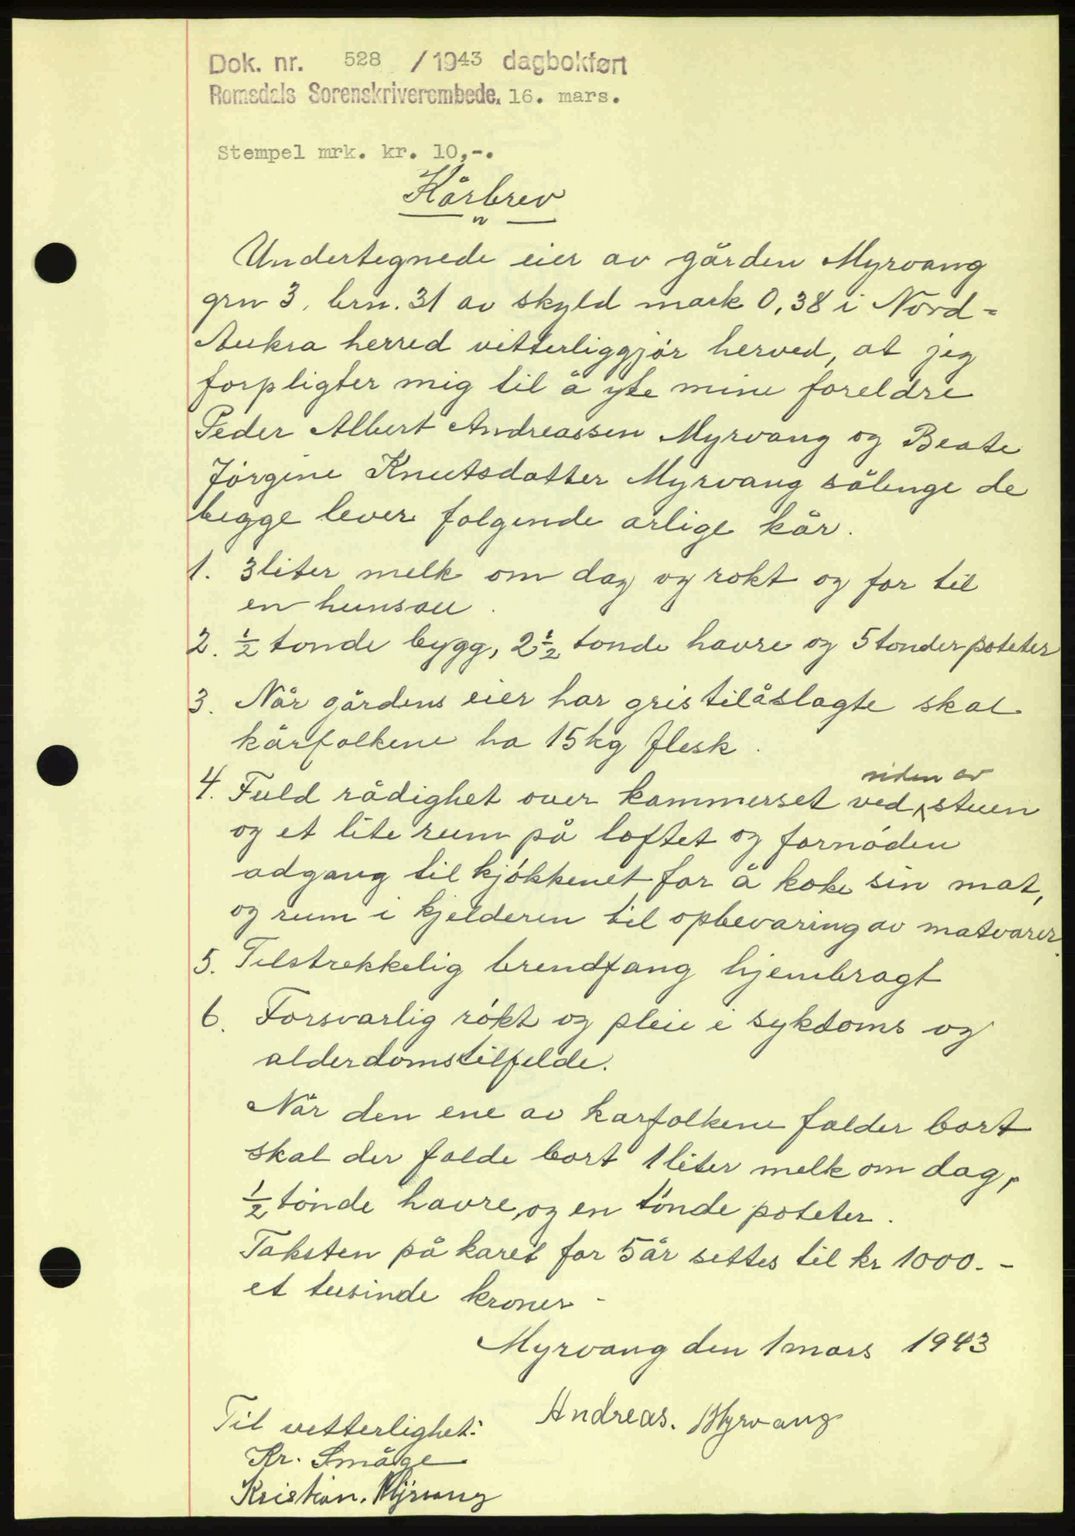 Dok. nr. 528 / 1943 dagbokført
Romsdals Sorenskriverembede. 16. mars.
Stempel mrk. kr. 10,-.
Kårbrev
Undertegnede eier av gården Myrvang
grn 3, brn. 31 av skyld mark 0,38 i Nord-
Aukra herred vitterliggjør herved, at jeg
forpligter mig til å yte mine foreldre
Peder Albert Andreassen Myrvang og Beate
Jørgine Knutsdatter Myrvang sålenge de
begge lever folgende arlige kår.
1. 3 liter melk om dag og rokt og for til
en hunsau.
2. ½ tonde bygg, 2½ tonde havre og 5 tonder poteter
3. Når gårdens eier har gris til å slagte skal
kårfolkene ha 15 kg flesk.
4. Fuld rådighet over kammerset ved siden av stuen
og et lite rum på loftet og fornøden
adgang til kjøkkenet for å koke sin mat,
og rum i kjelderen til opbevaring av matvarer.
5. Tilstrekkelig brendfang hjembragt
6. Forsvarlig røkt og pleie i sykdoms og
alderdomstilfelde.
Når den ene av karfolkene falder bort
skal der falde bort 1 liter melk om dag,
½ tønde havre, og en tønde poteter.
Taksten på karet for 5 år settes til kr 1000.-
et tusinde kroner -
Myrvang den 1 mars 1943
Andreas. Myrvang
Til vitterlighet:
Kr. Småge
Kristian. Myrvang